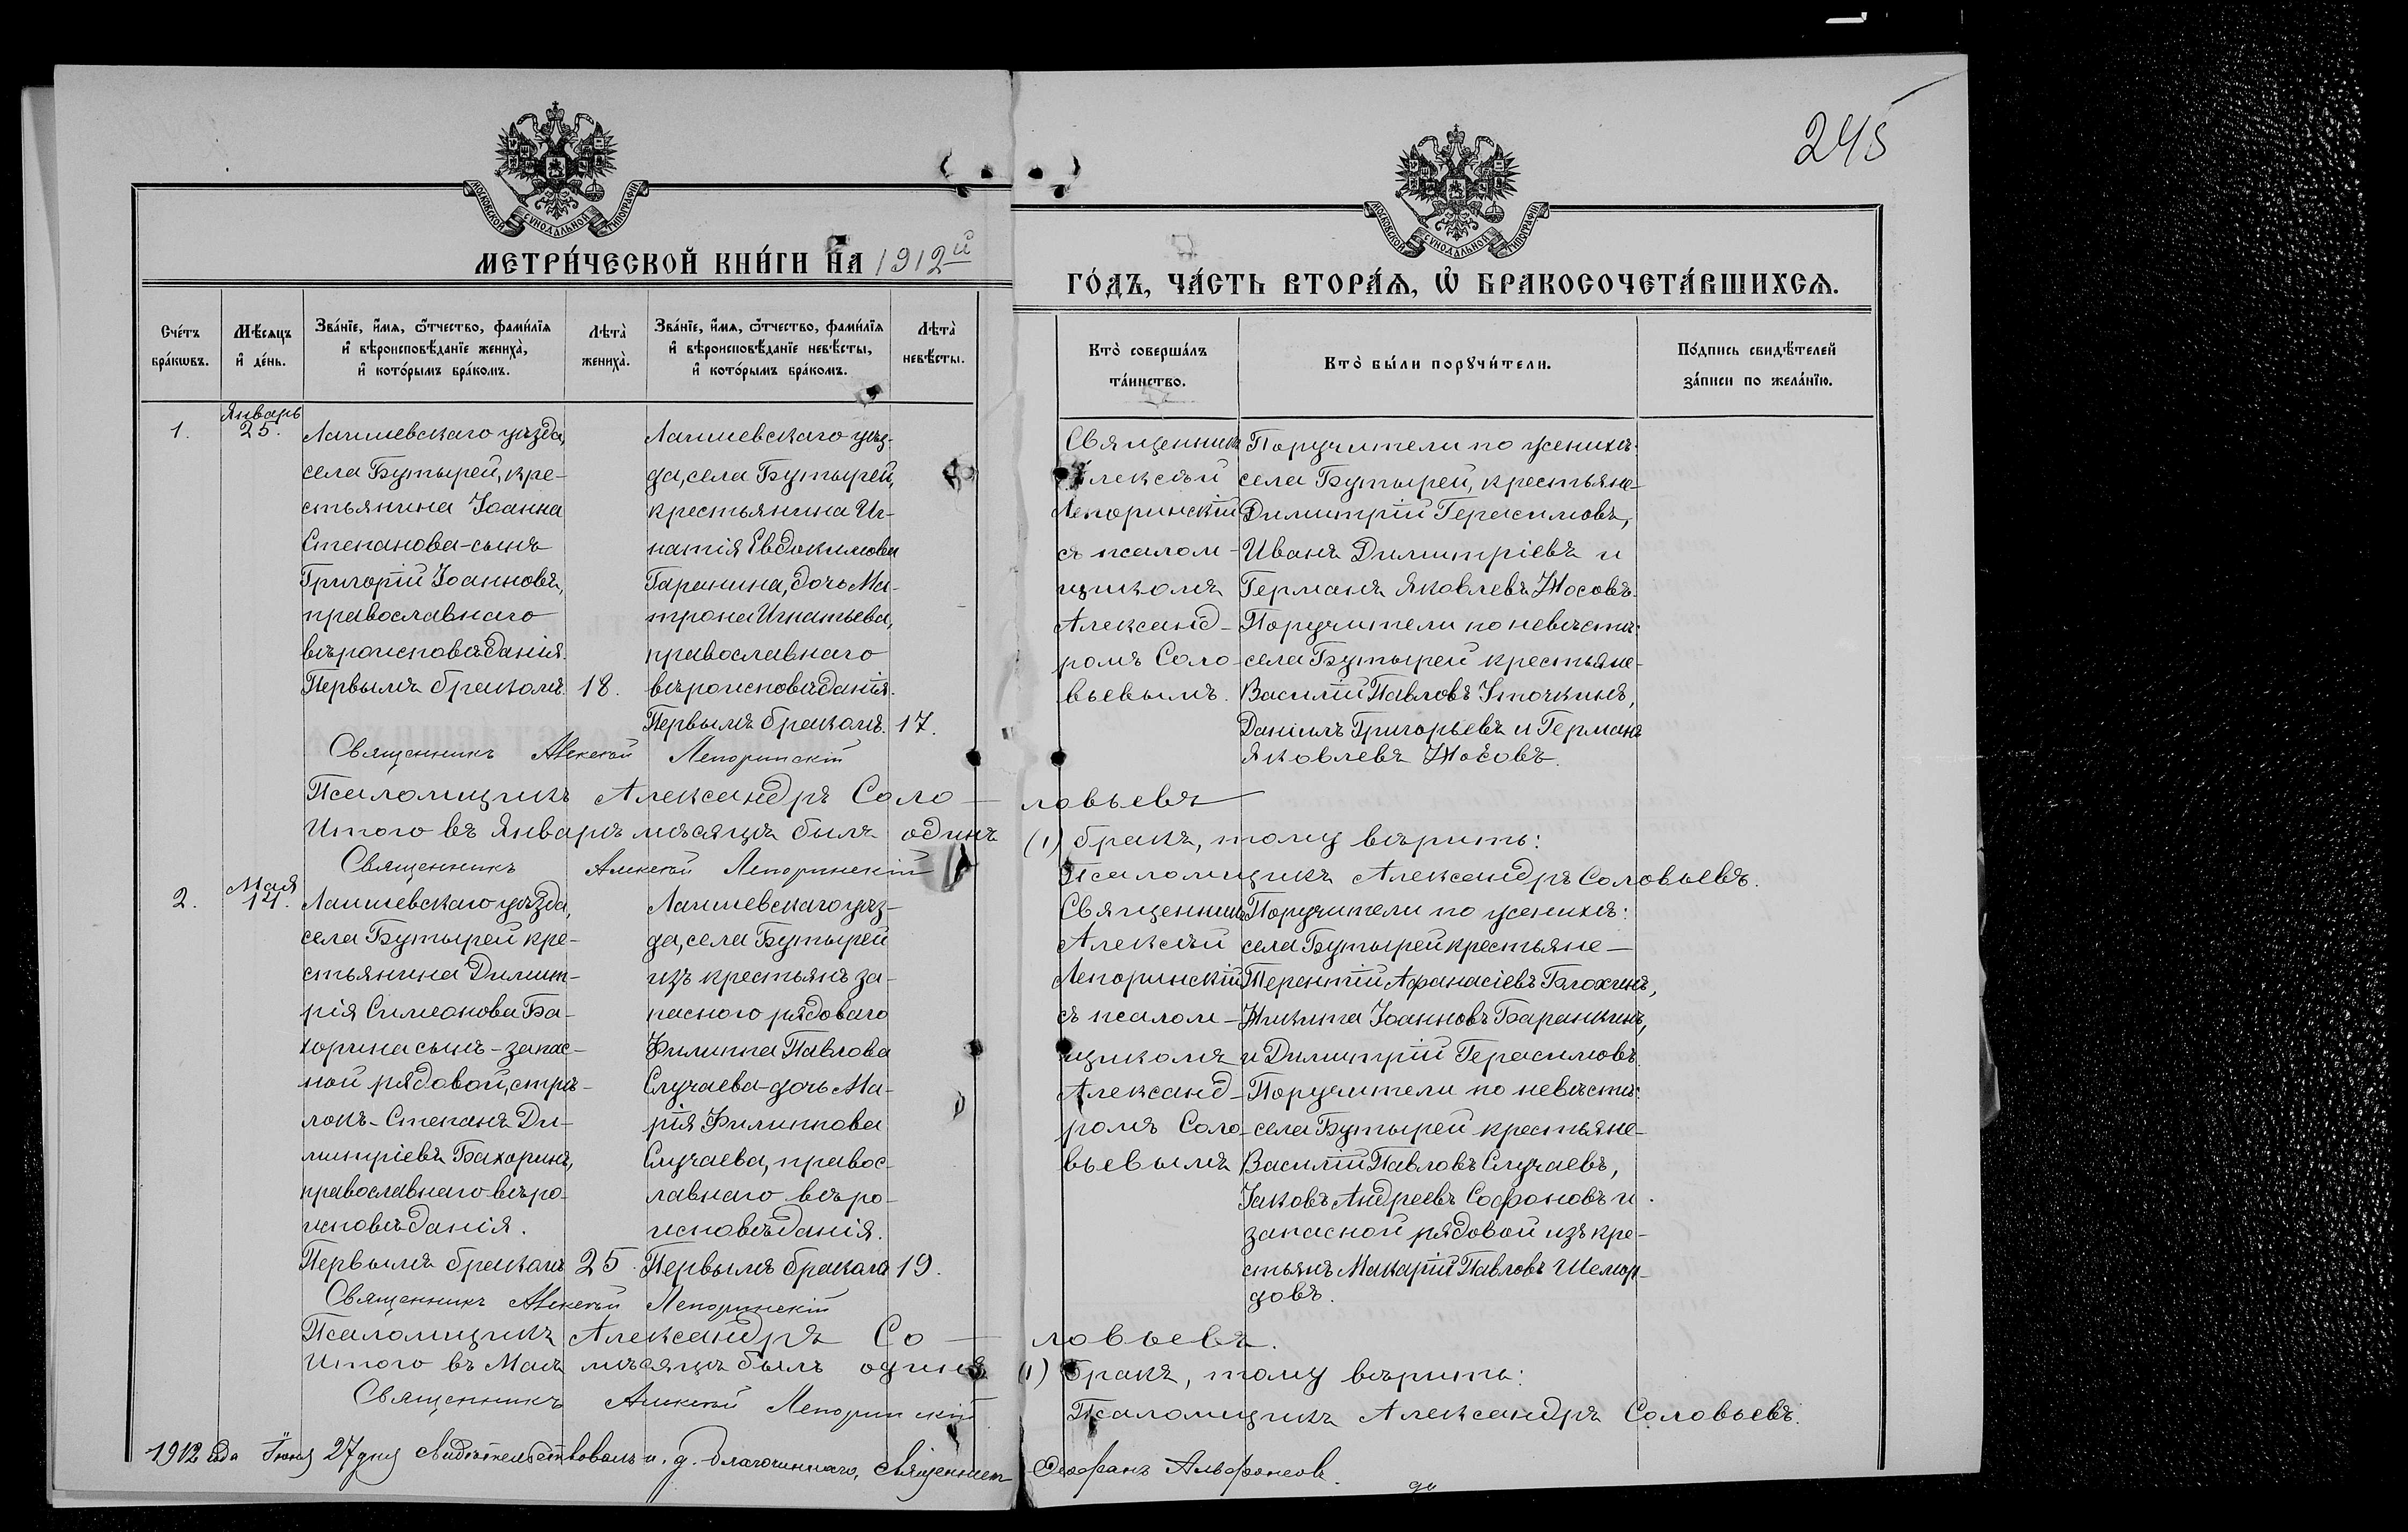 245
МОСКОВСКОЙ СѴНОДАЛЬНОЙ ТИПОГРАФІИ
МОСКОВСКОЙ СѴНОДАЛЬНОЙ ТИПОГРАФІИ
МЕТРИ́ЧЕСКОЙ КНИ́ГИ НА 1912й
ГО́ДЪ, ЧА́СТЬ ВТОРА́Ѧ, Ѽ БРАКОСОЧЕТА́ВШИХСѦ.
Сче́тъ
бра́кѡвъ.
Мѣ́сѧцъ
и҆ де́нь.
Зва́нїе, и҆́мѧ, ѻ҆́тчество, фами́лїѧ
и҆ вѣроисповѣ́данїе жениха̀,
и҆ кото́рымъ бра́комъ.
Лѣта̀
жениха̀.
Зва́нїе, и҆́мѧ, ѻ҆́тчество, фами́лїѧ
и҆ вѣроисповѣ́данїе невѣ́сты,
и҆ кото́рымъ бра́комъ.
Лѣта̀
невѣ́сты.
Кто̀ соверша́лъ
та́инство.
Кто̀ бы́ли порꙋчи́тели.
По́дпись свидѣ́телей
за́писи по жела́нїю.
1.
Январь
25.
Лаишевскаго уѣзда,
села Бутырей, кре-
стьянина Іоанна
Степанова-сынъ
Григорій Іоанновъ,
православнаго
вѣроисповѣданія.
Первымъ бракомъ.
18.
Лаишевскаго уѣз-
да, села Бутырей,
крестьянина Иг-
натія Евдокимова
Гаранина, дочь Ма-
трона Игнатьева,
православнаго
вѣроисповѣданія.
Первымъ бракомъ.
17.
Священникъ
Алексѣй
Лепоринскій
съ псалом-
щикомъ
Александ-
ромъ Соло-
вьевымъ.
Поручители по женихѣ:
села Бутырей, крестьяне-
Димитрій Герасимовъ,
Иванъ Димитріевъ и
Германъ Яковлевъ Носовъ.
Поручители по невѣстѣ:
села Бутырей крестьяне-
Василій Павловъ Уточкинъ,
Даніилъ Григорьевъ и Германъ
Яковлевъ Носовъ.
Священникъ Алексѣй Лепоринскій
Псаломщикъ Александръ Соло-ловьевъ
Итого въ Январѣ мѣсяцѣ былъ одинъ (1) бракъ, тому вѣрить:
Священникъ Алексѣй Лепоринскій
Псаломщикъ Александръ Соловьевъ.
2.
Мая
14.
Лаишевскаго уѣзда,
села Бутырей кре-
стьянина Димит-
рія Симеонова Ба-
хорина сынъ-запас-
ной рядовой, стрѣ-
локъ-Степанъ Ди-
митріевъ Бахоринъ,
православнаго вѣро-
исповѣданія.
Первымъ бракомъ
25.
Лаишевскаго уѣз-
да, села Бутырей
изъ крестьянъ за-
пасного рядоваго
Филиппа Павлова
Случаева-дочь Ма-
рія Филиппова
Случаева, правос-
лавнаго вѣро-
исповѣданія.
Первымъ бракомъ
19.
Священникъ
Алексѣй
Лепоринскій
съ псалом-
щикомъ
Александ-
ромъ Соло-
вьевымъ
Поручители по женихѣ:
села Бутырей крестьяне-
Терентій Афанасіевъ Блохинъ,
Никита Іоанновъ Баранкинъ,
и Димитрій Герасимовъ.
Поручители по невѣстѣ:
села Бутырей крестьяне-
Василій Павловъ Случаевъ,
Іаковъ Андреевъ Софоновъ и
запасной рядовой изъ кре-
стьянъ Макарій Павловъ Шемор-
довъ.
Священникъ Алексѣй Лепоринскій
Псаломщикъ Александръ Со-ловьевъ.
Итого въ Маѣ мѣсяцѣ былъ одинъ (1) бракъ, тому вѣрить:
Священникъ Алексѣй Лепоринскій
Псаломщикъ Александръ Соловьевъ.
1912 года Іюня 27 дня свидѣтельствовалъ и. д. благочиннаго, священникъ Феофанъ Альфонсовъ.